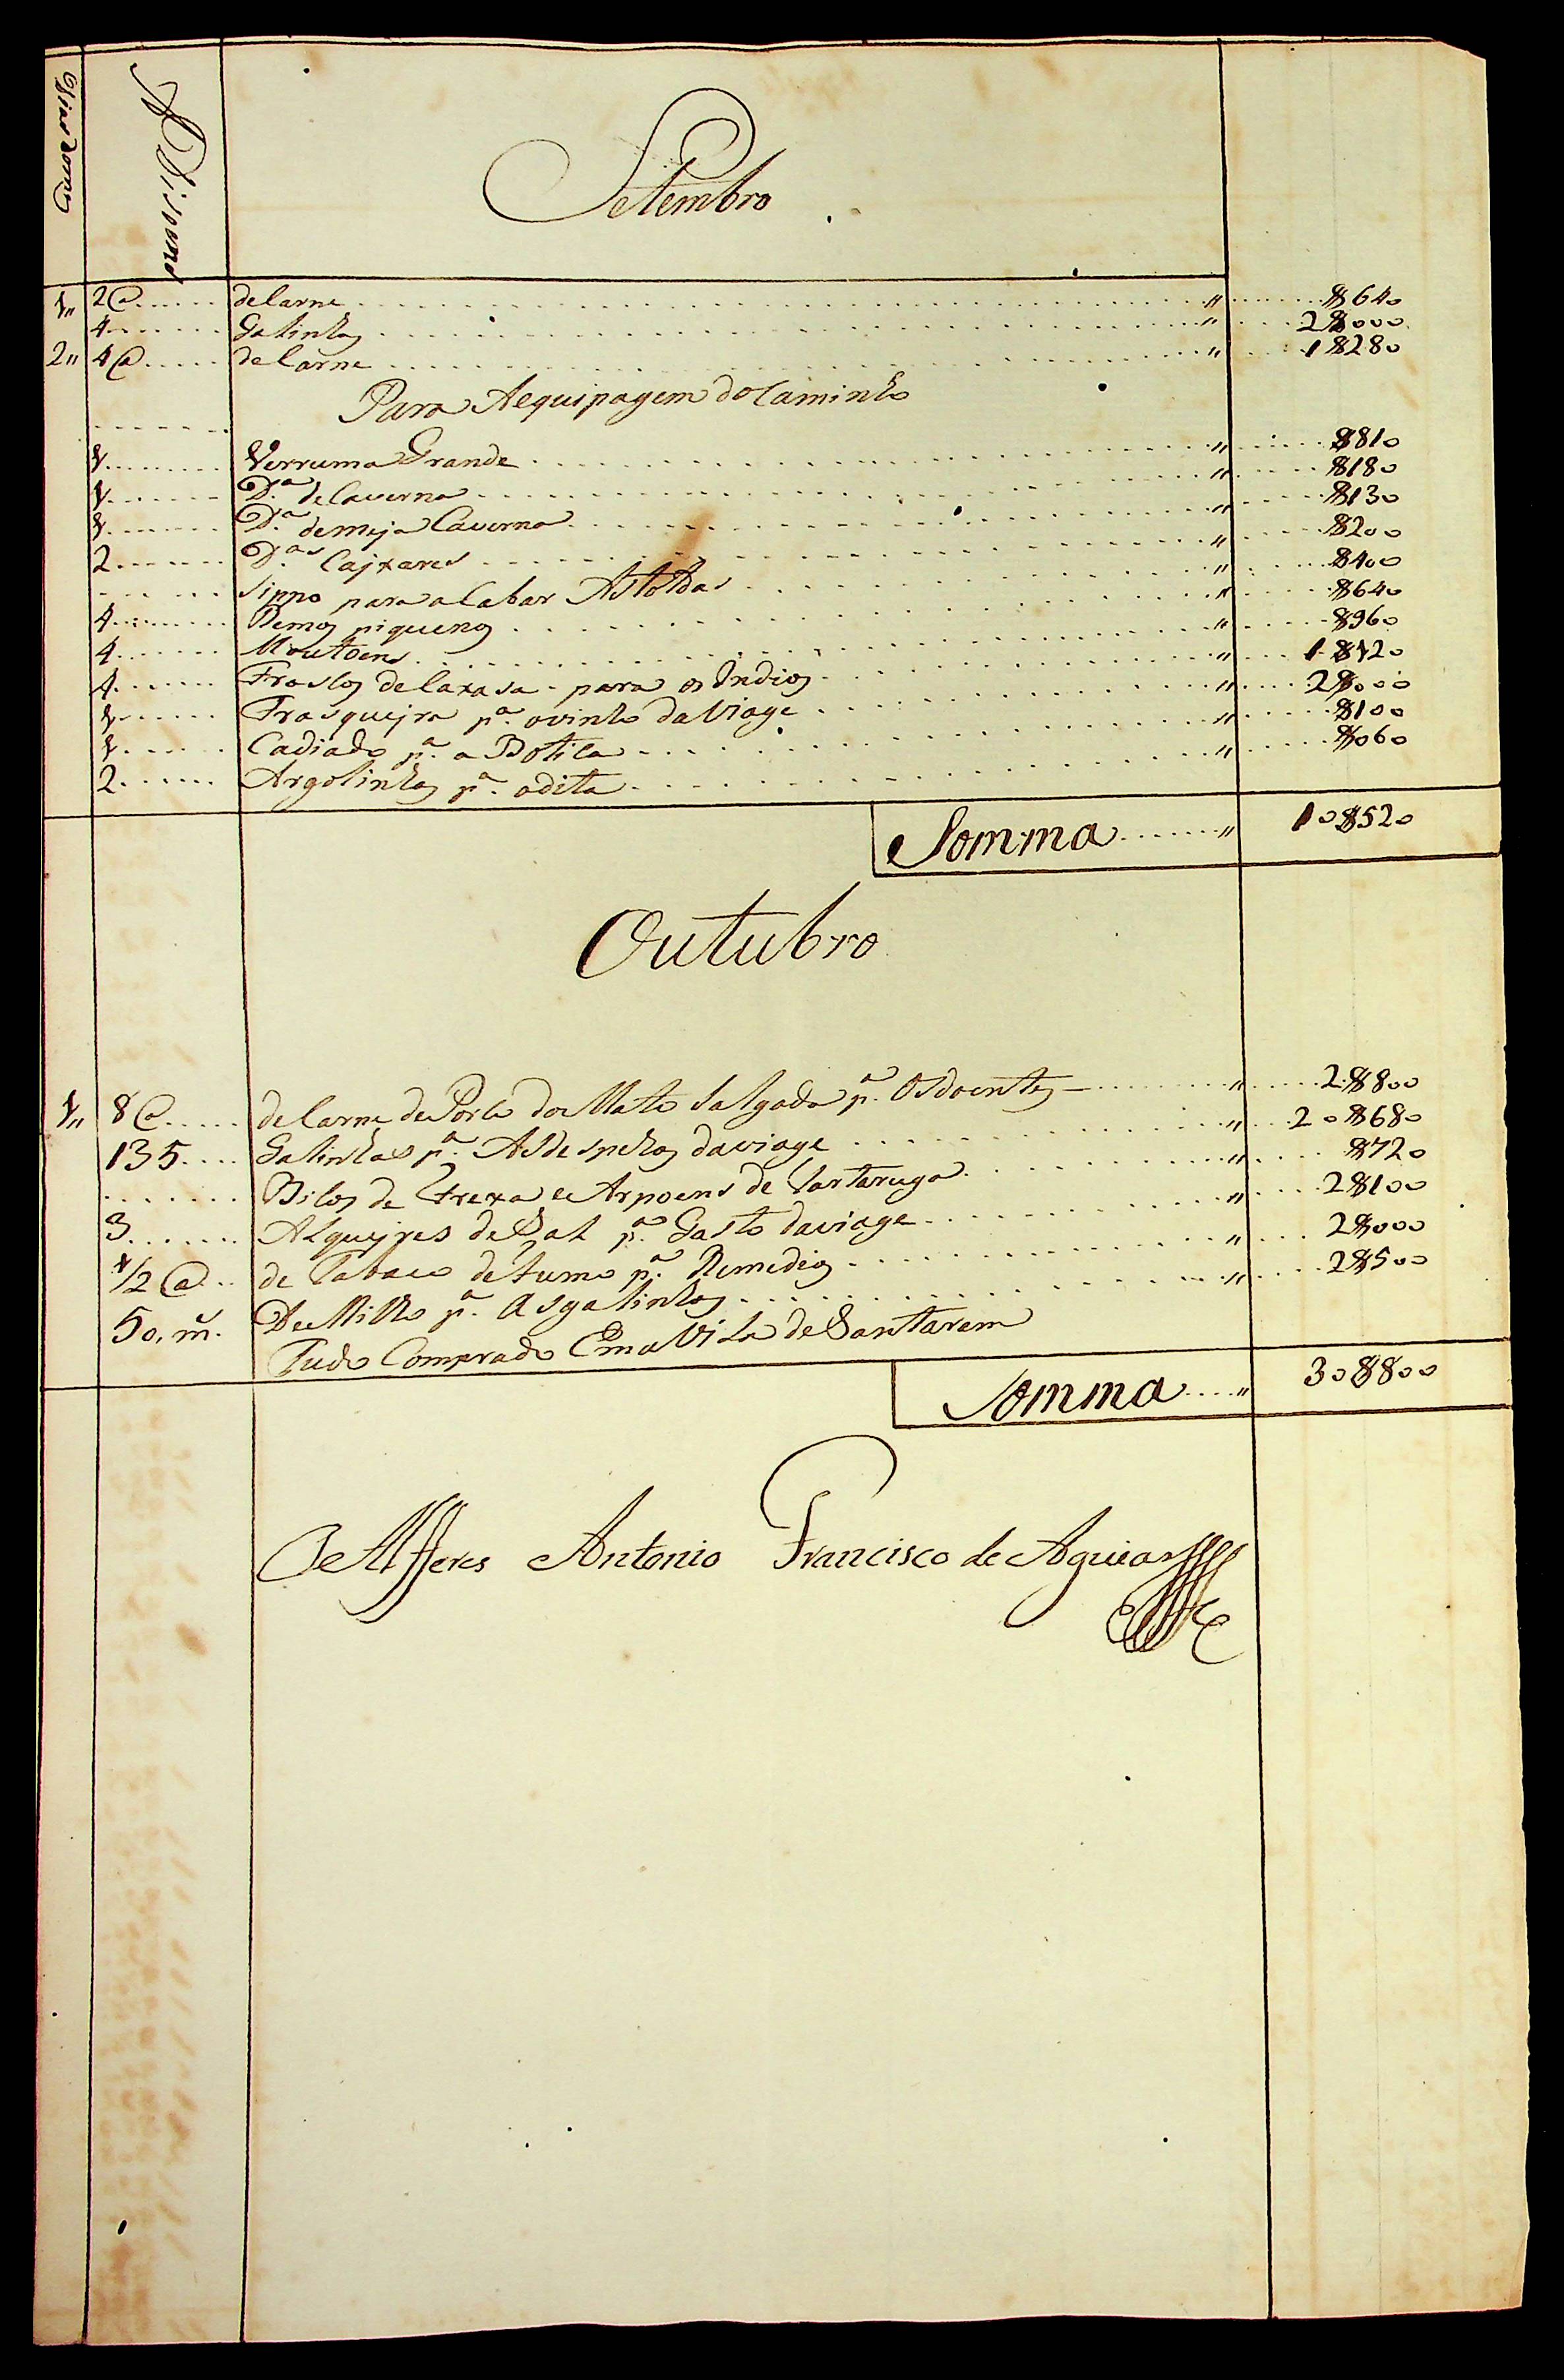 Dias do mes
Setembro
1,, 2@ de Carne ,, $640
4 Galinhas ,, 2$000
2,, 4@ de Carne ,, 1$280
Para A equipagem do Caminho
1 Verruma Grande ,, $810
1 D.ª de Caverna ,, $180
1 D.ª de meja Caverna ,, $130
2 D.as Cajxares ,, $200
Sippo para acabar As toldas ,, $400
4 Remos piquenos ,, $640
4 Moutoens ,, $960
4 Frascos de Caxasa para os Indios ,, 1$120
1 Frasquejra p.ª o vinho da Viage ,, 2$000
1 Cadiado p.ª a Botica ,, $100
2 Argolinhas p.ª a dita ,, $060
Somma ,, 10$520
Outubro
1,, 8@ de Carne de Porco do Mato Salgada p.ª Os doentes ,, 2$800
135 Galinhas p.ª As despezas da viage ,, 20$680
Bicos de Frexa e Arpoens de Tartaruga ,, $720
3 Alquejres de Sal p.ª Gasto da viage ,, 2$100
1/2@ de Tabaco de fumo p.ª Remedios ,, 2$000
50,m. De Milho p.ª As galinhas ,, 2$500
Tudo Comprado Em a Vila de Santarem
Somma ,, 30$800
O Alferes Antonio Francisco de Aguiar